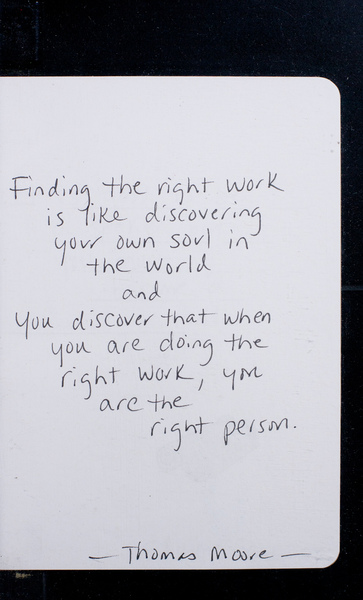 Finding the right work
is like discovering
your own soul in
the world
and
you discover that when
you are doing the
right work, you
are the
right person.
— Thomas Moore —